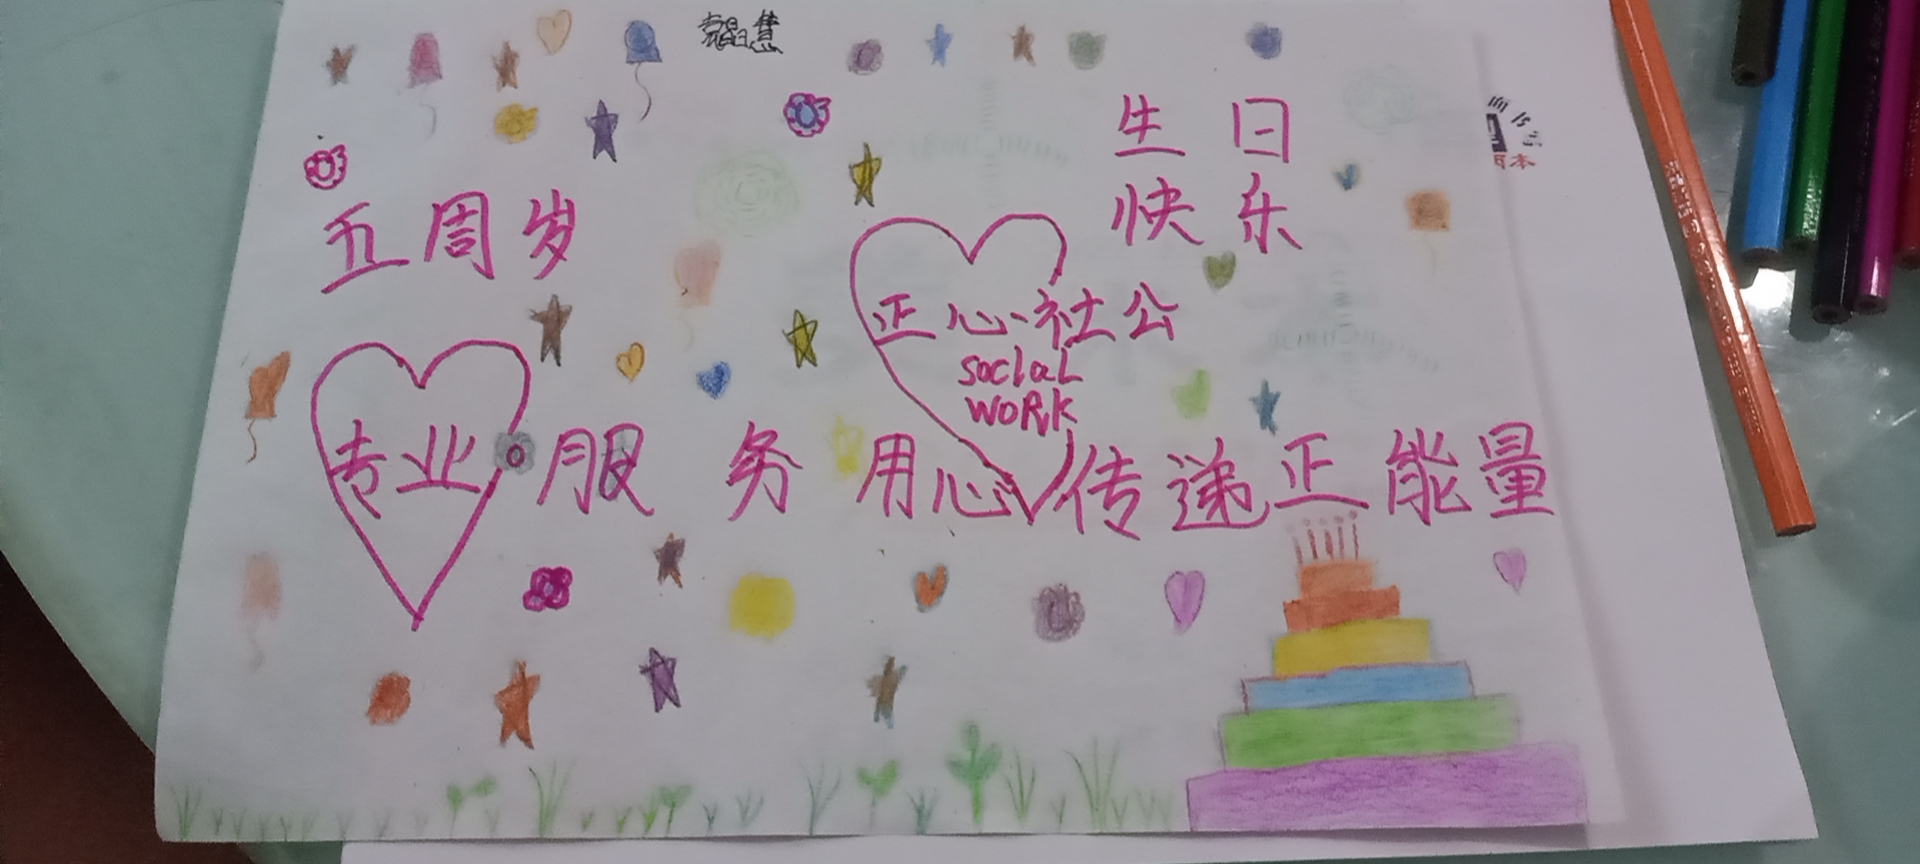 生日
五周岁
快乐
正心社公
social
work
专业服务用心传递正能量